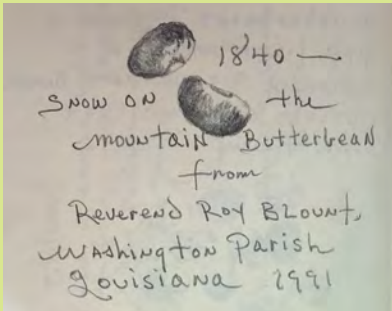 1840 —
SNOW ON the
mountain Butterbean
from
Reverend Roy Blount,
Washington Parish
Louisiana 1991